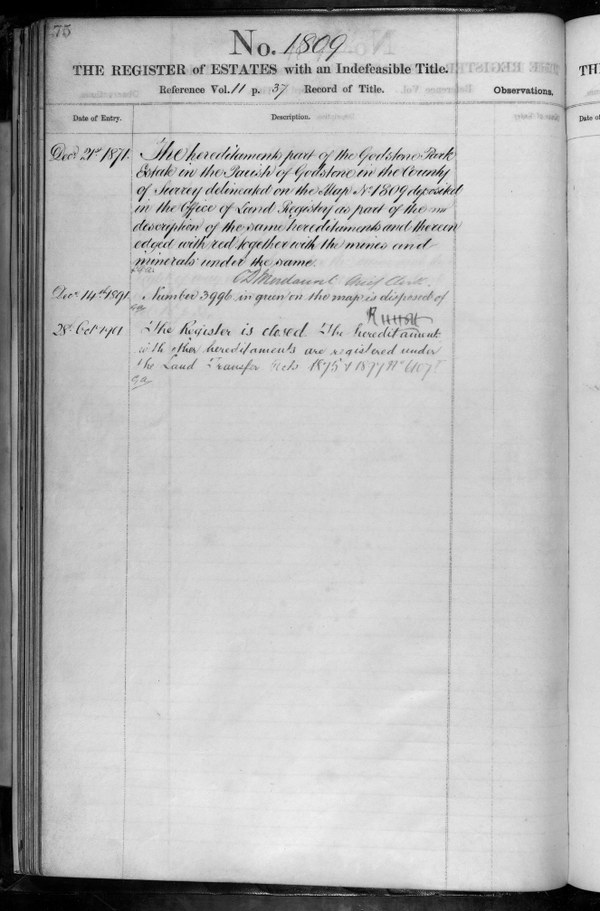 75
No. 1809
THE REGISTER of ESTATES with an Indefeasible Title.
Reference Vol. 11 p. 37 Record of Title.
Observations.
Date of Entry.
Description.
Decr 21st 1871.
The hereditaments part of the Godstone Park
Estate in the Parish of Godstone in the County
of Surrey delineated on the Map No 1809 deposited
in the Office of Land Registry as part of the
description of the same hereditaments and thereon
edged with red together with the mines and
minerals under the same.
Chief Clerk
Decr 14th 1891.
Number 3996 in green on the map is disposed of
28 Oct 1901
The Register is closed. The hereditaments
with other hereditaments are registered under
the Land Transfer Acts 1875 & 1897 No
TH
Date of